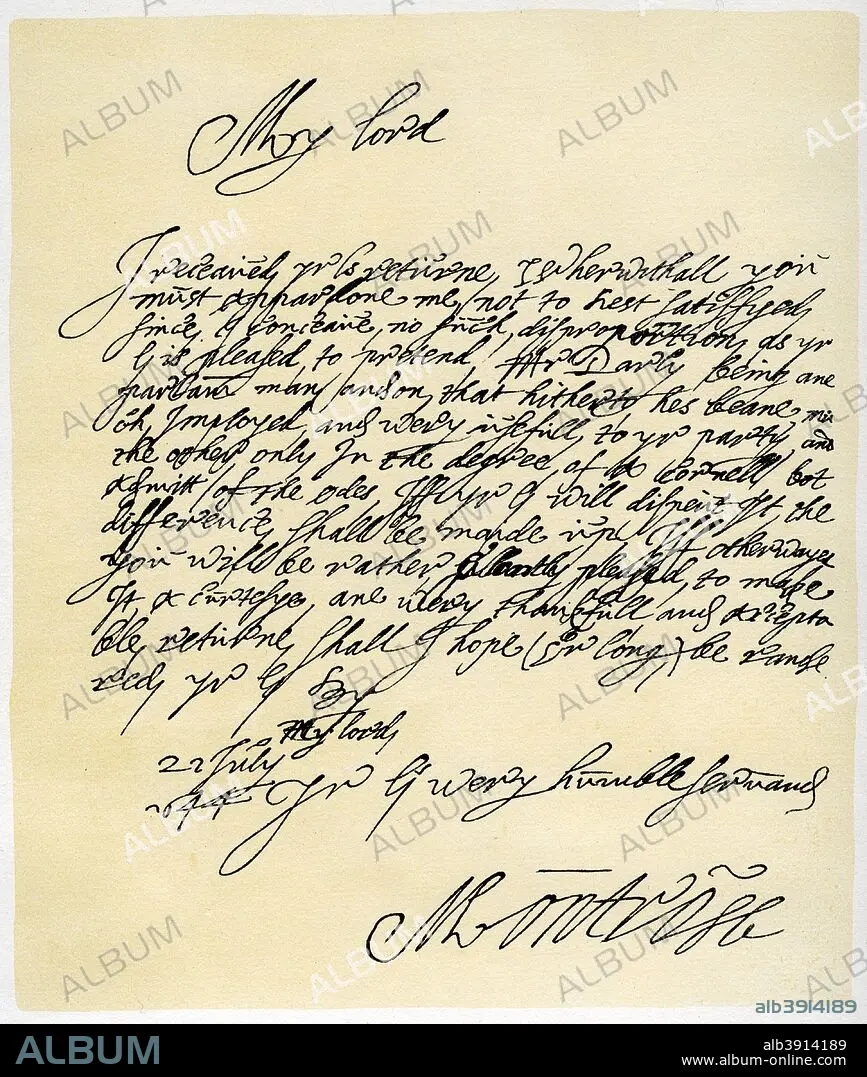 My lord
I receaved yr ls returne, wherwithall you
must pardone me not to rest satisfyed,
since I conceave no such disproportion as yr
l is pleased to pretend, Mr Darly being ane
man, and on that hitherto hes beane
Imployed, and wery usefull to yr party, and
the other only In the degree of a cornell bot
of the odes, If yr l will dispenc It, the
difference shall be made up, If otherwayes
you will be rather pleased to make
It a curtesye, ane wery thankfull and accepta
ble returne shall I hope (or long) be rande
red yr l by
My lord,
22 July
1644 Yr l wery humble servand
Montrose
ALBUM
alb3914189
ALBUM
alb3914189
www.album-online.com